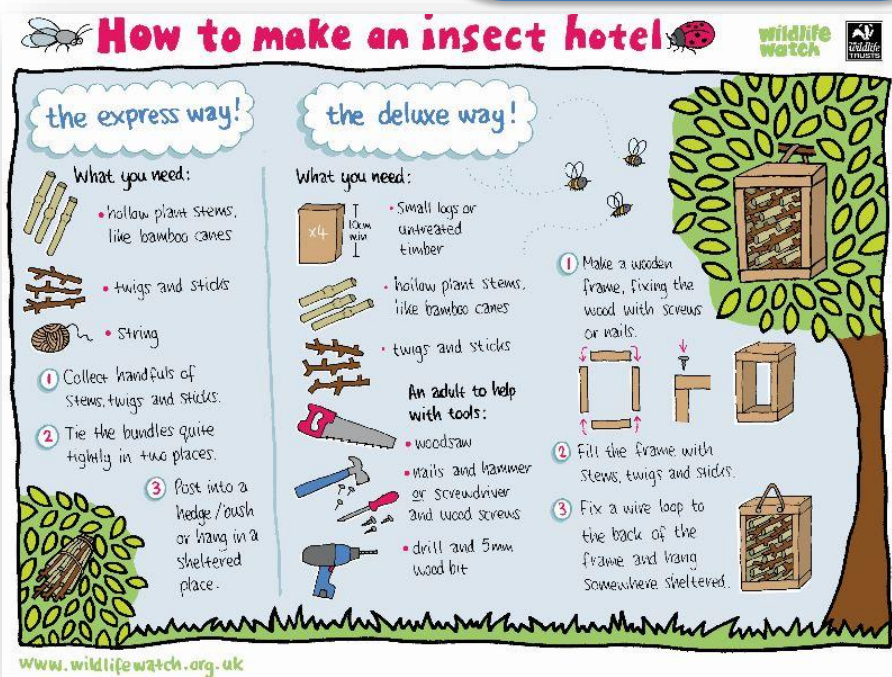 How to make an insect hotel
wildlife
watch
The
Wildlife
TRUSTS
the express way!
What you need:
• hollow plant stems,
like bamboo canes
• twigs and sticks
• String
1 Collect handfuls of
stems, twigs and sticks.
2 Tie the bundles quite
tightly in two places.
3 Post into a
hedge/bush
or hang in a
sheltered
place.
the deluxe way!
What you need:
x4
10cm
min
• Small logs or
untreated
timber
• hollow plant stems,
like bamboo canes
• twigs and sticks
An adult to help
with tools:
• woodsaw
• nails and hammer
or screwdriver
and wood screws
• drill and 5mm
wood bit
1 Make a wooden
frame, fixing the
wood with screws
or nails.
2 Fill the frame with
stems, twigs and sticks.
3 Fix a wire loop to
the back of the
frame and hang
somewhere sheltered.
www.wildlifewatch.org.uk